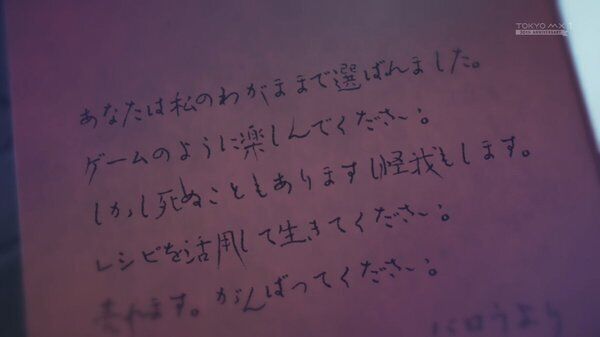 TOKYO MX1
あなたは私のわがままで選ばれました。
ゲームのように楽しんでください。
しかし死ぬこともありますし怪我もします。
レシピを活用して生きてください。
れます。がんばってください。
より